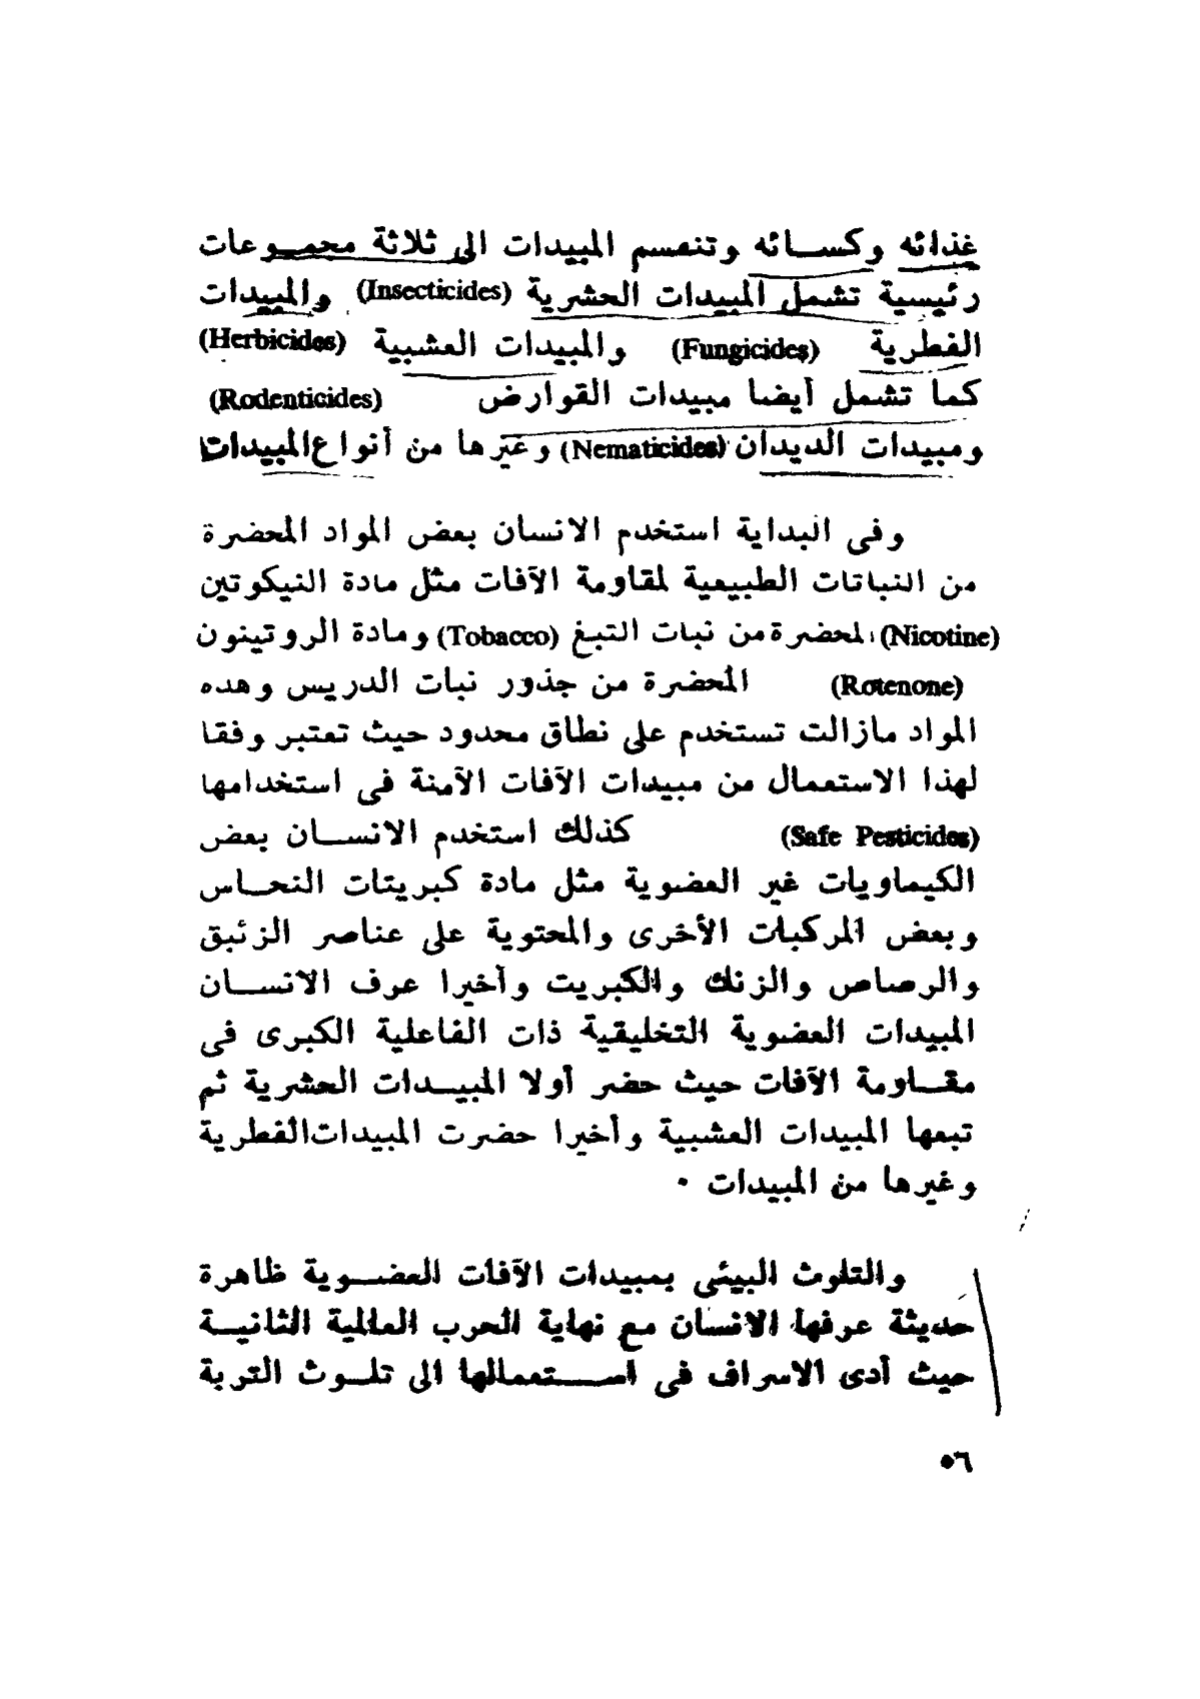 غذائه وكسائه وتنقسم المبيدات الى ثلاثة مجموعات
رئيسية تشمل المبيدات الحشرية (Insecticides) والمبيدات
الفطرية (Fungicides) والمبيدات العشبية (Herbicides)
كما تشمل أيضا مبيدات القوارض (Rodenticides)
ومبيدات الديدان (Nematicides) وغيرها من أنواع المبيدات
وفى البداية استخدم الانسان بعض المواد المحضرة
من النباتات الطبيعية لمقاومة الآفات مثل مادة النيكوتين
(Nicotine) المحضرة من نبات التبغ (Tobacco) ومادة الروتينون
(Rotenone) المحضرة من جذور نبات الدريس وهذه
المواد مازالت تستخدم على نطاق محدود حيث تعتبر وفقا
لهذا الاستعمال من مبيدات الآفات الآمنة فى استخدامها
(Safe Pesticides) كذلك استخدم الانسان بعض
الكيماويات غير العضوية مثل مادة كبريتات النحاس
وبعض المركبات الأخرى والمحتوية على عناصر الزئبق
والرصاص والزنك والكبريت وأخيرا عرف الانسان
المبيدات العضوية التخليقية ذات الفاعلية الكبرى فى
مقاومة الآفات حيث حضر أولا المبيدات الحشرية ثم
تبعها المبيدات العشبية وأخيرا حضرت المبيدات الفطرية
وغيرها من المبيدات ٠
والتلوث البيئى بمبيدات الآفات العضوية ظاهرة
حديثة عرفها الانسان مع نهاية الحرب العالمية الثانية
حيث أدى الاسراف فى استعمالها الى تلوث التربة
٥٦